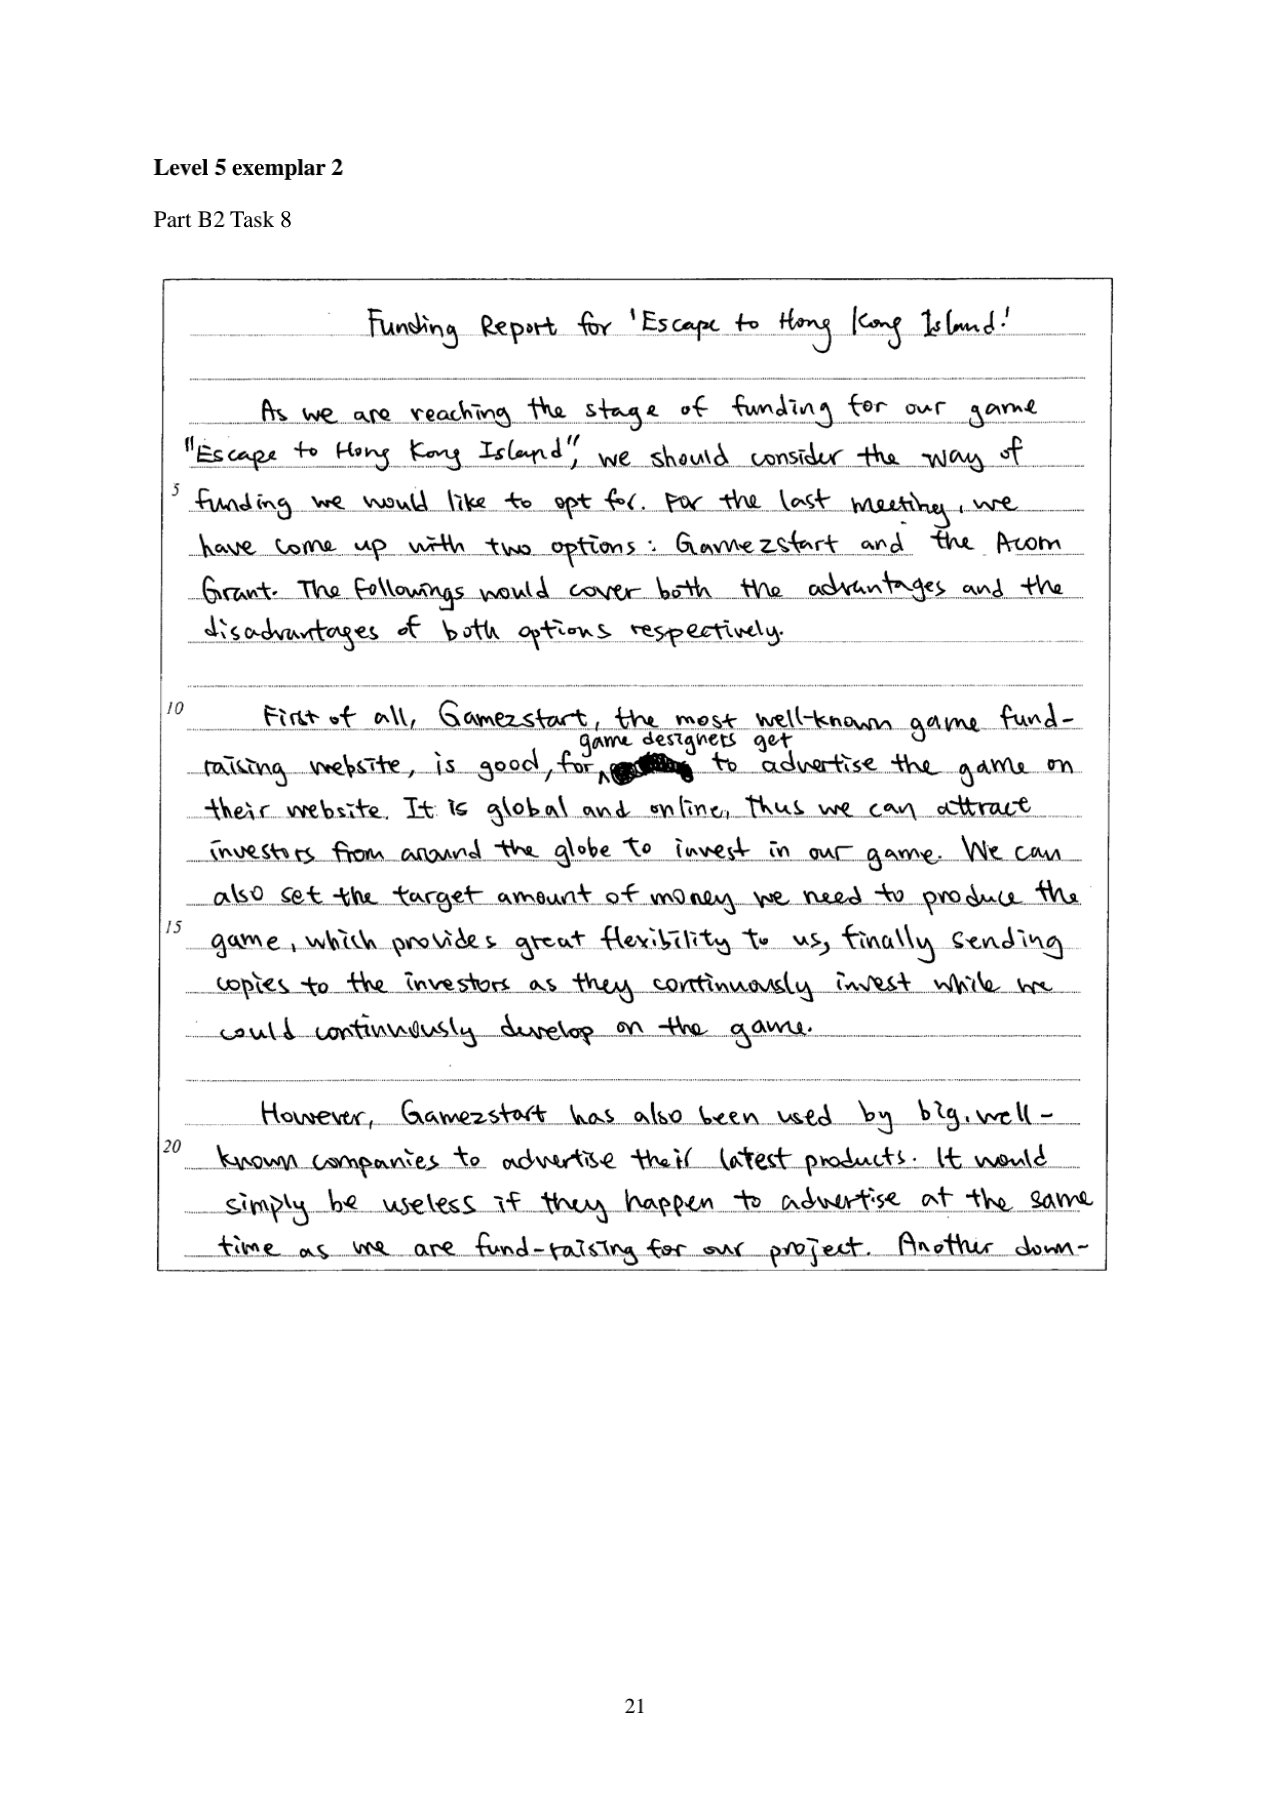 Level 5 exemplar 2
Part B2 Task 8
Funding Report for 'Escape to Hong Kong Island!'
As we are reaching the stage of funding for our game
"Escape to Hong Kong Island", we should consider the way of
5 funding we would like to opt for. For the last meeting, we
have come up with two options: Gamezstart and the Acorn
Grant. The followings would cover both the advantages and the
disadvantages of both options respectively.
10 First of all, Gamezstart, the most well-known game fund-
game designers get
raising website, is good, for ^ to advertise the game on
their website. It is global and online, thus we can attract
investors from around the globe to invest in our game. We can
also set the target amount of money we need to produce the
15 game, which provides great flexibility to us, finally sending
copies to the investors as they continuously invest while we
could continuously develop on the game.
However, Gamezstart has also been used by big, well-
20 known companies to advertise their latest products. It would
simply be useless if they happen to advertise at the same
time as we are fund-raising for our project. Another down-
21